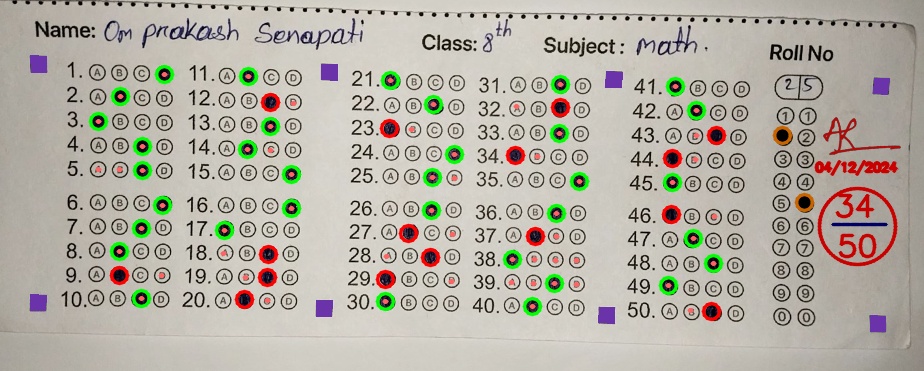 Name: Om prakash Senapati
Class: 8th
Subject: math.
Roll No
25
1. A B C
2. A C D
3. B C D
4. A B D
5. A B D
6. A B C
7. A B D
8. A C D
9. A C D
10. A B D
11. A C D
12. A B D
13. A B D
14. A C D
15. A B C
16. A B C
17. B C D
18. A B D
19. A B D
20. A C D
21. B C D
22. A B D
23. B C D
24. A B C
25. A B D
26. A B D
27. A C D
28. A B D
29. B C D
30. B C D
31. A B D
32. A B D
33. A B D
34. B C D
35. A B C
36. A B D
37. A C D
38. B C D
39. A B D
40. A C D
41. B C D
42. A C D
43. A B D
44. B C D
45. B C D
46. B C D
47. A C D
48. A B D
49. B C D
50. A B D
1 1
2
3 3
4 4
5
6 6
7 7
8 8
9 9
0 0
04/12/2024
34
50